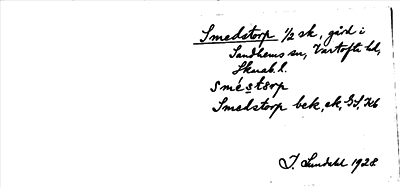 Smedstorp 1/2 sk, gård i
Sandhems sn, Vartofta hd,
Skarab. l.
sméstorp
Smedstorp bek, ek, GS, Kb
J. Sundahl 1928